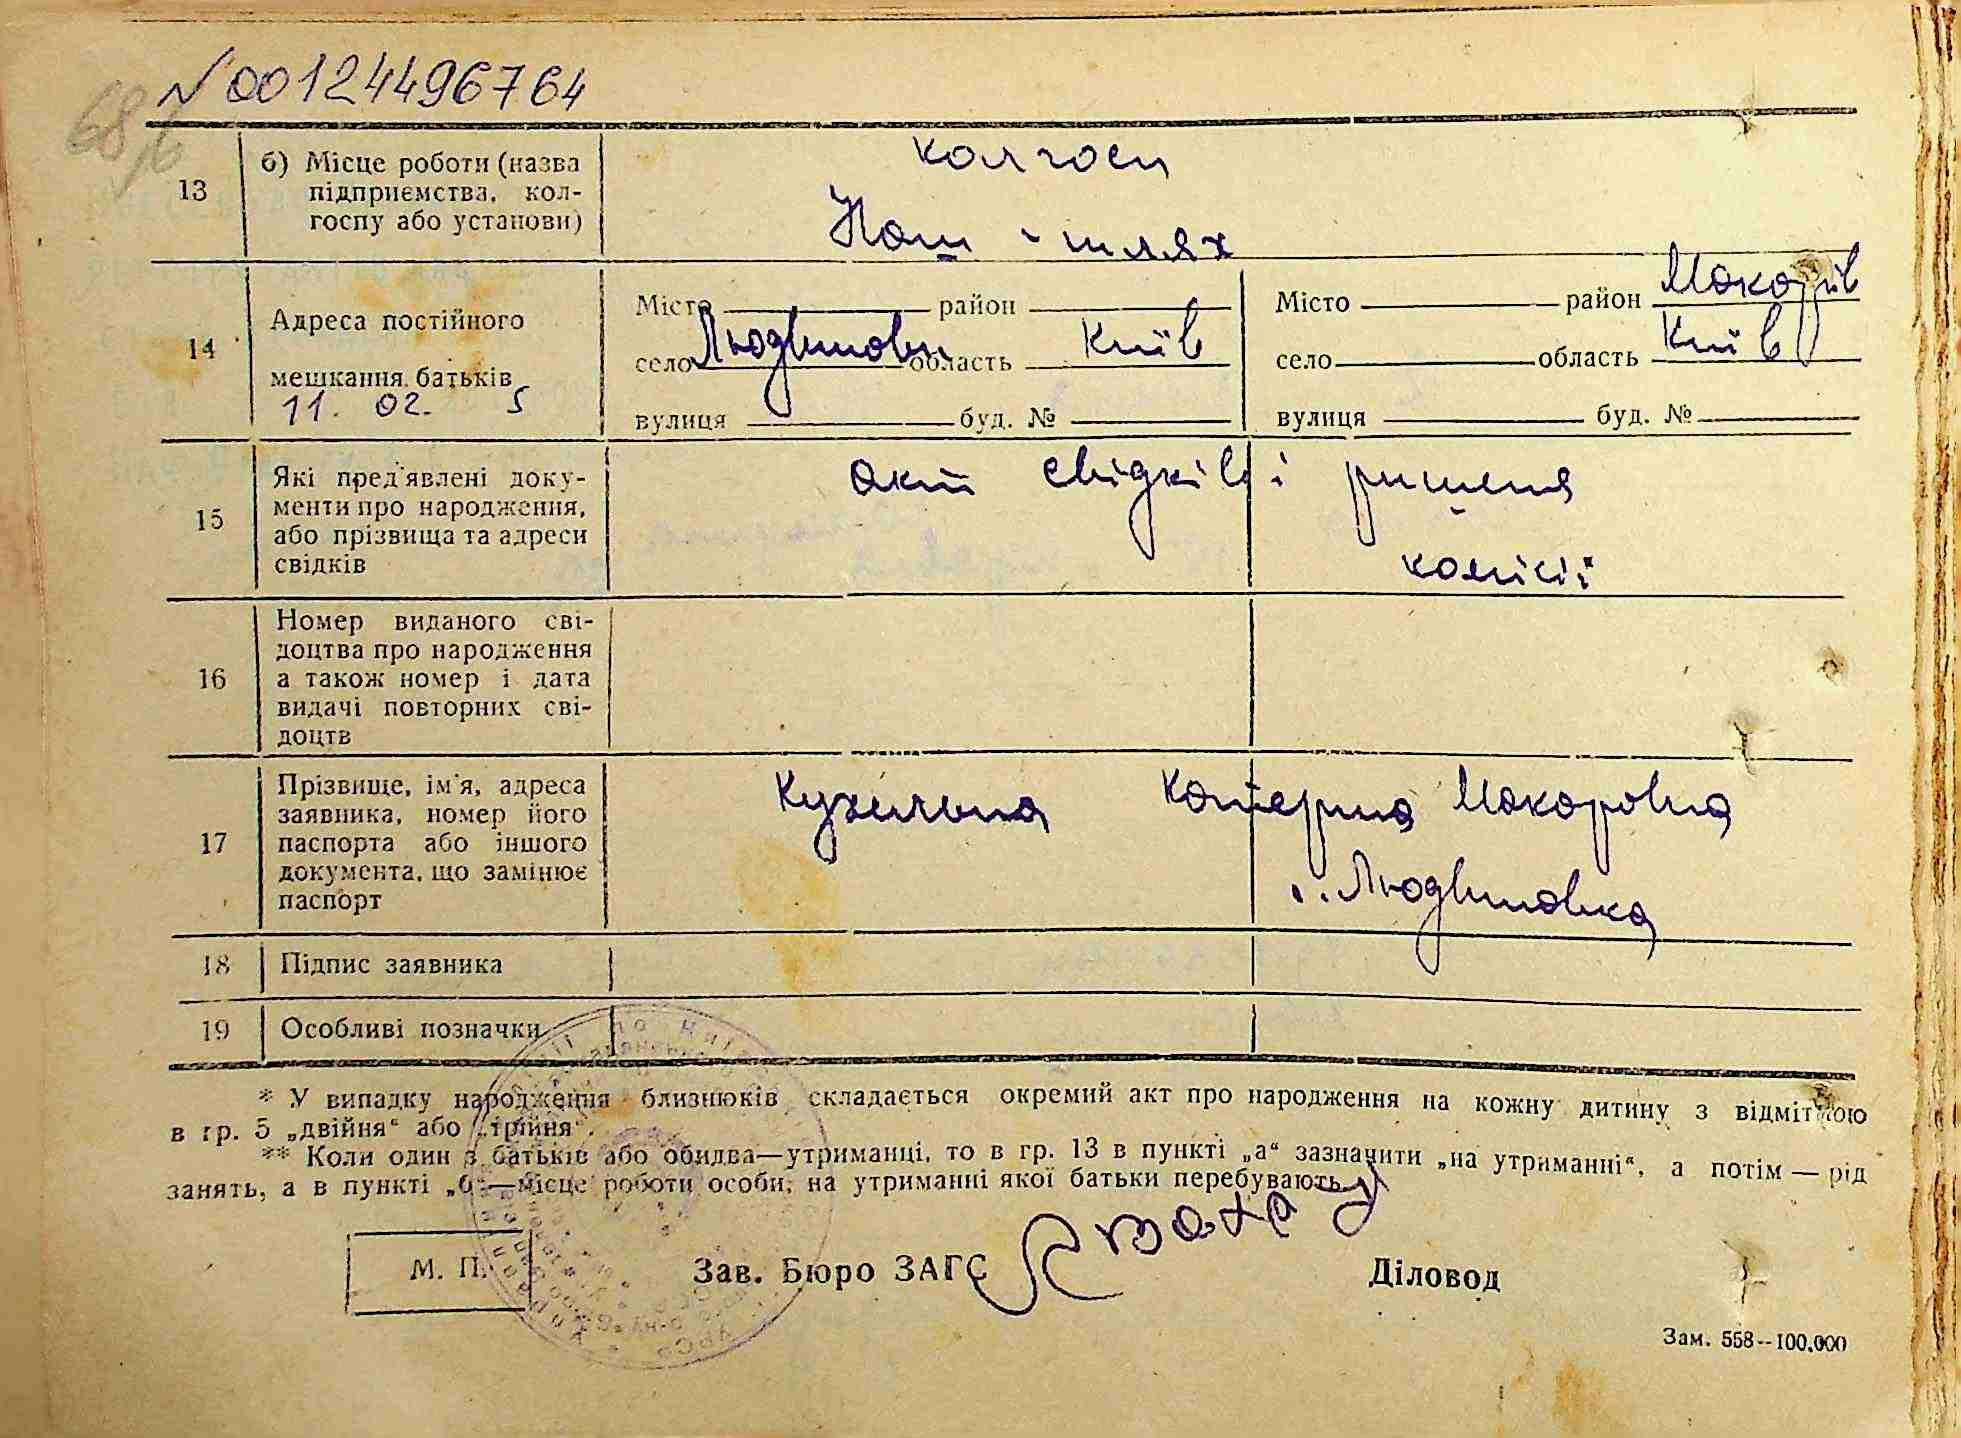 N 00124496764
68
13 б) Місце роботи (назва
підприємства, кол-
госпу або установи)
колгосп
Наш шлях
14 Адреса постійного
мешкання батьків
11. 02. 5
Місто район
село Людвинови область Київ
вулиця буд. №
Місто район Макарів
село область Київ
вулиця буд. №
15 Які пред'явлені доку-
менти про народження,
або прізвища та адреси
свідків
акт свідків і ришеня
комісії
16 Номер виданого сві-
доцтва про народження
а також номер і дата
видачі повторних сві-
доцтв
17 Прізвище, ім'я, адреса
заявника, номер його
паспорта або іншого
документа, що замінює
паспорт
Кухильна Катерина Макаровна
с. Людвиновка
18 Підпис заявника
19 Особливі позначки
* У випадку народження близнюків складається окремий акт про народження на кожну дитину з відміткою
в гр. 5 „двійня“ або „трійня“.
** Коли один з батьків або обидва—утриманці, то в гр. 13 в пункті „а“ зазначити „на утриманні“, а потім — рід
занять, а в пункті „б“—місце роботи особи, на утриманні якої батьки перебувають.
М. П.
Зав. Бюро ЗАГС
Діловод
Зам. 558--100.000